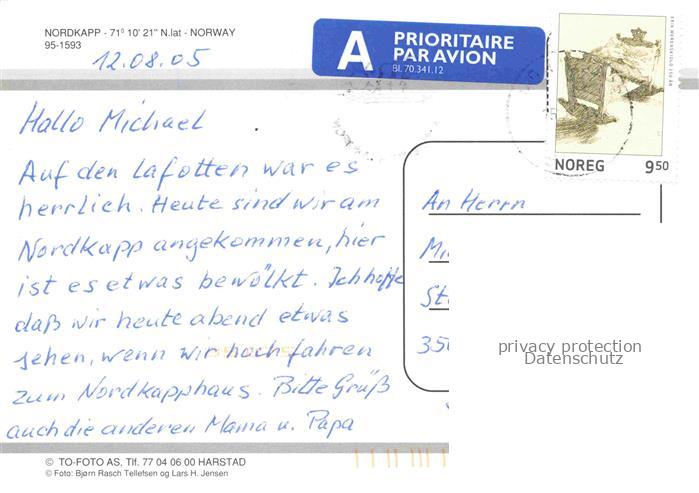 NORDKAPP - 71º 10' 21" N.lat - NORWAY
95-1593
12.08.05
A PRIORITAIRE
PAR AVION
Bl. 70.341.12
NOREG 9 50
Hallo Michael
Auf den Lafotten war es
herrlich. Heute sind wir am
Nordkapp angekommen, hier
ist es etwas bewölkt. Ich hoffe
daß wir heute abend etwas
sehen, wenn wir hoch fahren
zum Nordkapphaus. Bitte Grüß
auch die anderen Mama u. Papa
An Herrn
Mi
St
350
privacy protection
Datenschutz
© TO-FOTO AS, Tlf. 77 04 06 00 HARSTAD
© Foto: Bjørn Rasch Tellefsen og Lars H. Jensen